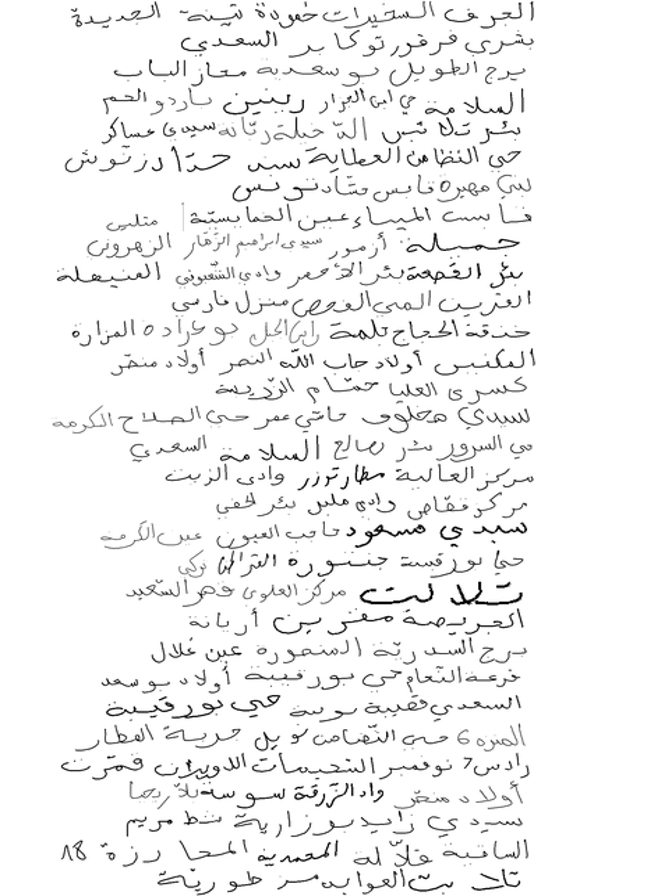 الجرف السخيرات حفوزة تبينة الجديدة
بشرى فرفور توكابر السعدي
برج الطويل بو سعدية مجاز الباب
السلامة حي ابن الجزار ربنين باردو الحم
بئر تلاتس الدخيلة زنانة سيدي عساكر
حي النظامن العطاية سند حدادرزتوش
لبني مهيرة قابس مشاد تونس
فا سب الميساء عين الحمايستة متلبي
جميلة أزمور سيدي ابراهيم الزهار الزهروني
بئر القصعة بئر الأحمر وادي الشعبوني المنيهلة
القرين المي الفحص منزل فارسي
خنقة الحجاج تلمة راس الجبل بو عرادة المزارة
المكنبس أولاد جاب الله النصر أولاد منصر
كسرى العليا حمام الزريبة
سيدي مخلوف حاشي عمر حي الصلاح الكرمة
حي السرور بئر صالح السلامة السعدي
مركز العالية مطار توزر وادي الزيت
مركز قفاص وادي مليل بئر الحفي
سيدي مسعود حاجب العيون عين الكرمة
حي بورقيبة جنورة التركي
تلالت مركز العلوي قهر السعيد
العريصة مقرين أريانة
برج السدرية المنصورة عين غلال
قرعة النعام حي بورقيبة أولاد بوسعد
السعدي فقيبة بونة حي بورقيبة
المنزه 6 حي التضامن نوبل جربة المطار
رادس 7 نوفمبر النجيمات الدويرات قمرت
أولاد منصر واد الزرقة سوسة بلاريجيا
سيدي زايد بوزارية شط مريم
الساقية قلالة المحمدية المحارزة 18
تالا بت العوابد مز طورية